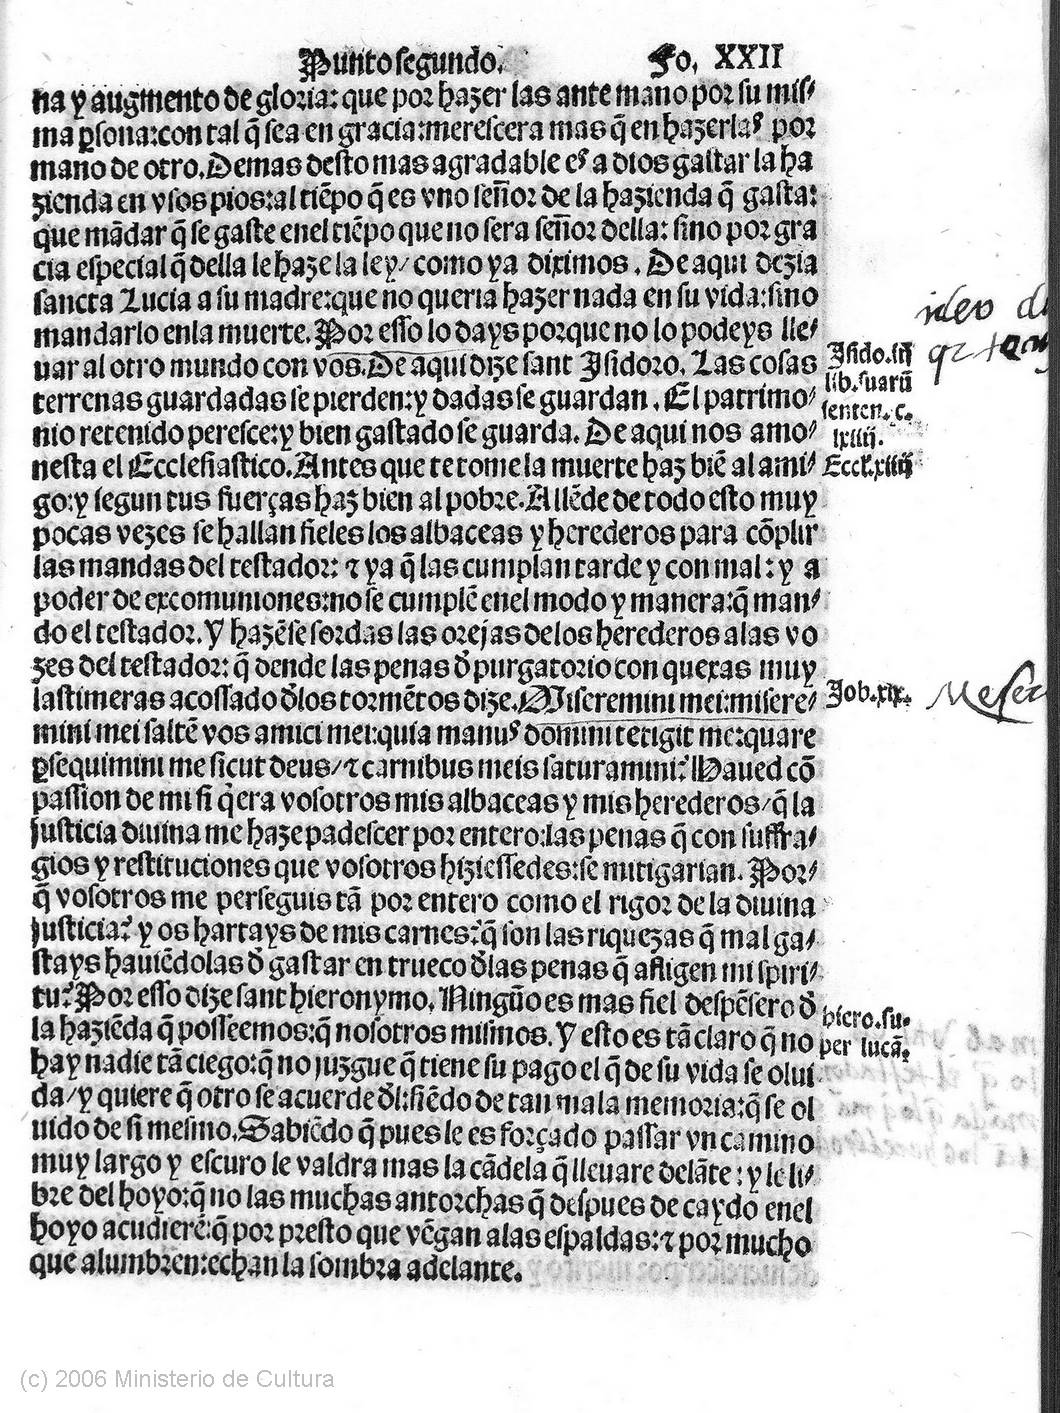 Punto segundo. Fo. XXII
na y augmento de gloria: que por hazer las ante mano por su mis/
ma ꝑsona: con tal q̃ sea en gracia: merescera mas q̃ en hazerlas por
mano de otro. Demas desto mas agradable es a dios gastar la ha
zienda en vsos pios: al tiẽpo q̃ es vno señor de la hazienda q̃ gasta:
que mãdar q̃ se gaste enel tiẽpo que no sera señor della: sino por gra
cia especial q̃ della le haze la ley/ como ya diximos. De aqui dezia
sancta Lucia a su madre: que no queria hazer nada en su vida: sino
mandarlo enla muerte. Por esso lo days porque no lo podeys lle/
uar al otro mundo con vos. De aqui dize sant Isidoro. Las cosas
terrenas guardadas se pierden: y dadas se guardan. El patrimo/
nio retenido peresce: y bien gastado se guarda. De aqui nos amo/
nesta el Ecclesiastico. Antes que te tome la muerte haz biẽ al ami/
go: y segun tus fuerças haz bien al pobre. Allẽde de todo esto muy
pocas vezes se hallan fieles los albaceas y herederos para cõplir
las mandas del testador: ⁊ ya q̃ las cumplan tarde y con mal: y a
poder de excomuniones: no se cumplẽ enel modo y manera: q̃ man/
do el testador. Y hazẽse sordas las orejas delos herederos alas vo
zes del testador: q̃ dende las penas d̃ purgatorio con quexas muy
lastimeras acossado d̃los tormẽtos dize. Miseremini mei: misere/
mini mei saltẽ vos amici mei: quia manus domini tetigit me: quare
ꝑsequimini me sicut deus/ ⁊ carnibus meis saturamini? Haued cõ
passion de mi si q̃era vosotros mis albaceas y mis herederos/ q̃ la
justicia diuina me haze padescer por entero: las penas q̃ con suffra/
gios y restituciones que vosotros hiziessedes: se mitigarian. Por/
q̃ vosotros me perseguis tã por entero como el rigor de la diuina
justicia? y os hartays de mis carnes: q̃ son las riquezas q̃ mal ga/
stays hauiẽdolas d̃ gastar en trueco d̃las penas q̃ afligen mi spiri/
tu? Por esso dize sant hieronymo. Ningũo es mas fiel despẽsero d̃
la haziẽda q̃ posseemos: q̃ nosotros mismos. Y esto es tã claro q̃ no
hay nadie tã ciego: q̃ no juzgue q̃ tiene su pago el q̃ de su vida se olui
da/ y quiere q̃ otro se acuerde d̃l: siẽdo de tan mala memoria: q̃ se ol
uido de si mesmo. Sabiẽdo q̃ pues le es forçado passar vn camino
muy largo y escuro le valdra mas la cãdela q̃ lleuare delãte: y le li/
bre del hoyo: q̃ no las muchas antorchas q̃ despues de caydo enel
hoyo acudierẽ: q̃ por presto que vẽgan alas espaldas: ⁊ por mucho
que alumbren: echan la sombra adelante.
Isido. iij
lib. suarũ
senten. c.
lxiiij.
Eccl. xiiij
Job. xix.
hiero. su.
per lucã.
(c) 2006 Ministerio de Cultura